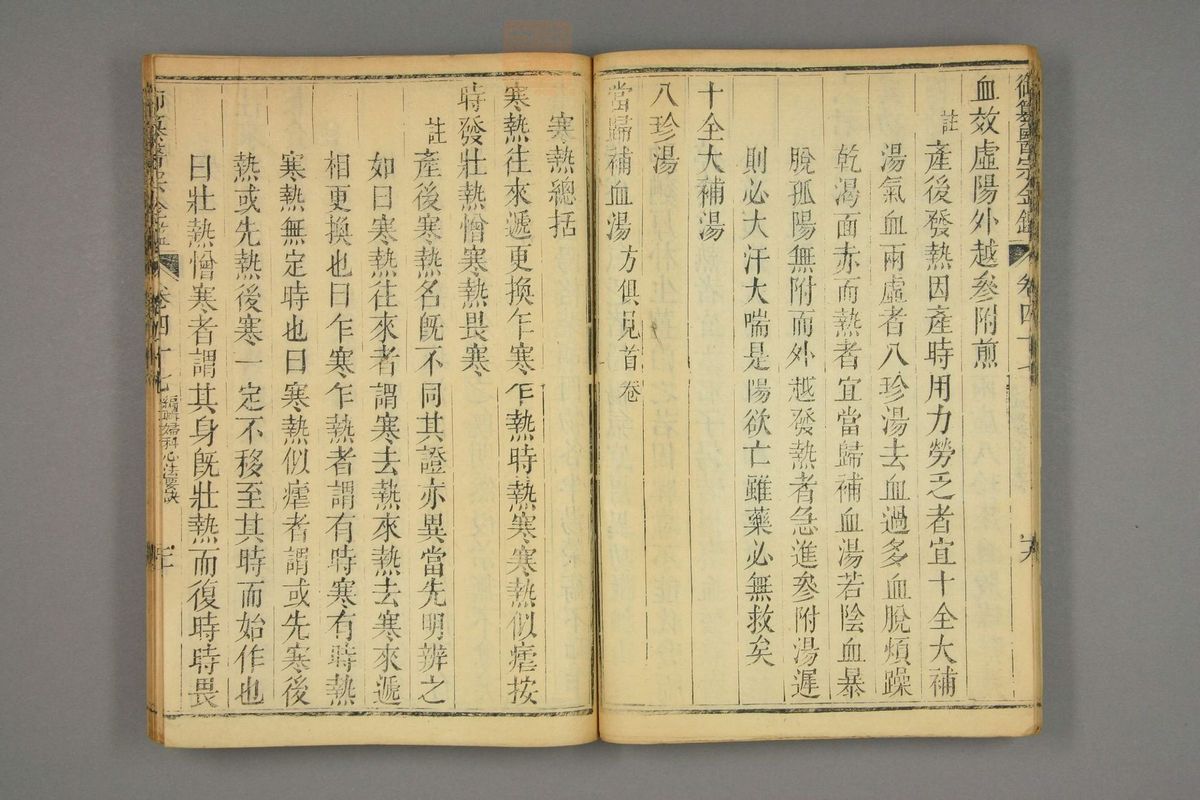 御纂醫宗金鑑 卷四十七
血效虛陽外越參附煎
註 產後發熱因產時用力勞乏者宜十全大補
湯氣血兩虛者八珍湯去血過多血脫煩躁
乾渴面赤而熱者宜當歸補血湯若陰血暴
脫孤陽無附而外越發熱者急進參附湯遲
則必大汗大喘是陽欲亡雖藥必無救矣
十全大補湯
八珍湯
當歸補血湯 方俱見首卷
寒熱總括
寒熱往來遞更換乍寒乍熱時熱寒寒熱似瘧按
時發壯熱憎寒熱畏寒
註 產後寒熱名旣不同其證亦異當先明辨之
如曰寒熱往來者謂寒去熱來熱去寒來遞
相更換也曰乍寒乍熱者謂有時寒有時熱
寒熱無定時也曰寒熱似瘧者謂或先寒後
熱或先熱後寒一定不移至其時而始作也
曰壯熱憎寒者謂其身旣壯熱而復時時畏
御纂醫宗金鑑 卷四十七 編輯婦科心法要訣